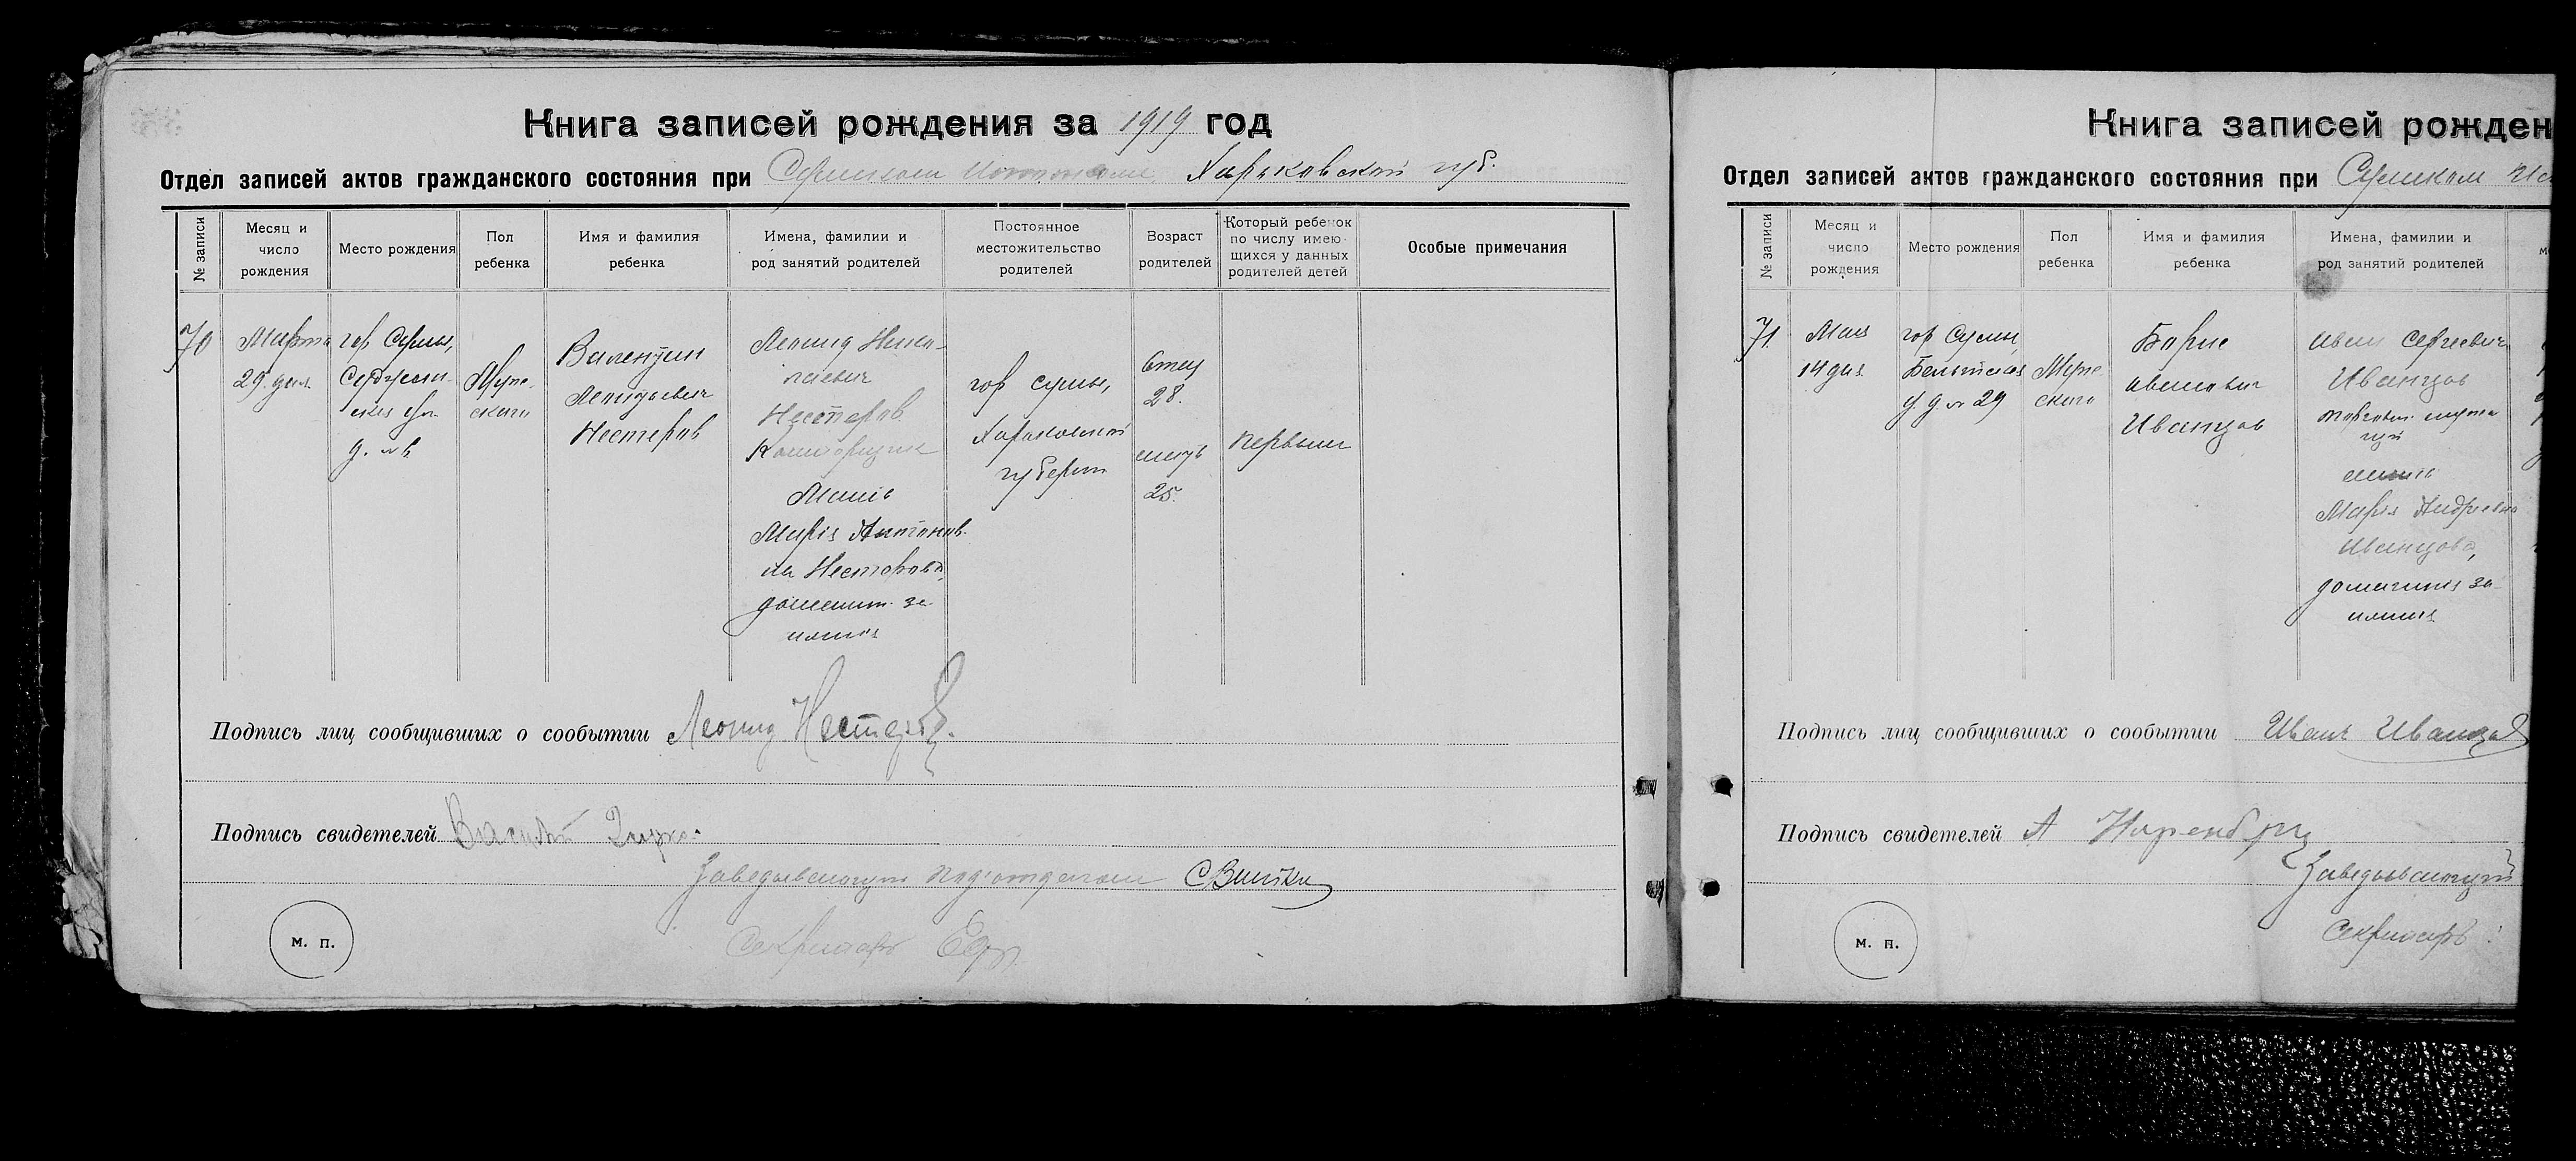 Книга записей рождения за 1919 год
Отдел записей актов гражданского состояния при Сумском Харьковской губ.
№ записи
Месяц и
число
рождения
Место рождения
Пол
ребенка
Имя и фамилия
ребенка
Имена, фамилии и
род занятий родителей
Постоянное
местожительство
родителей
Возраст
родителей
Который ребенок
по числу имею-
щихся у данных
родителей детей
Особые примечания
70
Марта
29. дня
гор Сумы,
д. №
Муже-
ского
Валентин
Леонидович
Нестеров
Леонид Нико-
лаевич
Нестеров
Мать
Марія Антонов-
на Нестерова,
домашн. за-
нятия
гор Сумы,
Харьковской
губерни
Отец
28.
мать
25.
первый
Подпись лиц сообщивших о сообытии Леонид Нестеров.
Подпись свидетелей Василий
Заведывающий под'отделом
Секретарь
м. п.
Книга записей рожден
Отдел записей актов гражданского состояния при Сумском Ис
№ записи
Месяц и
число
рождения
Место рождения
Пол
ребенка
Имя и фамилия
ребенка
Имена, фамилии и
род занятий родителей
71
Мая
14 дня
гор Сумы,
у. д. № 29
Муже
ского
Борис
Иванович
Иванцов
Иван Сергеевич
Иванцов
мать
Марія Андреевна
Иванцова,
домашния за-
нятия
Подпись лиц сообщивших о сообытии Иванъ Иванцов
Подпись свидетелей А
Заведывающий
Секретарь
м. п.